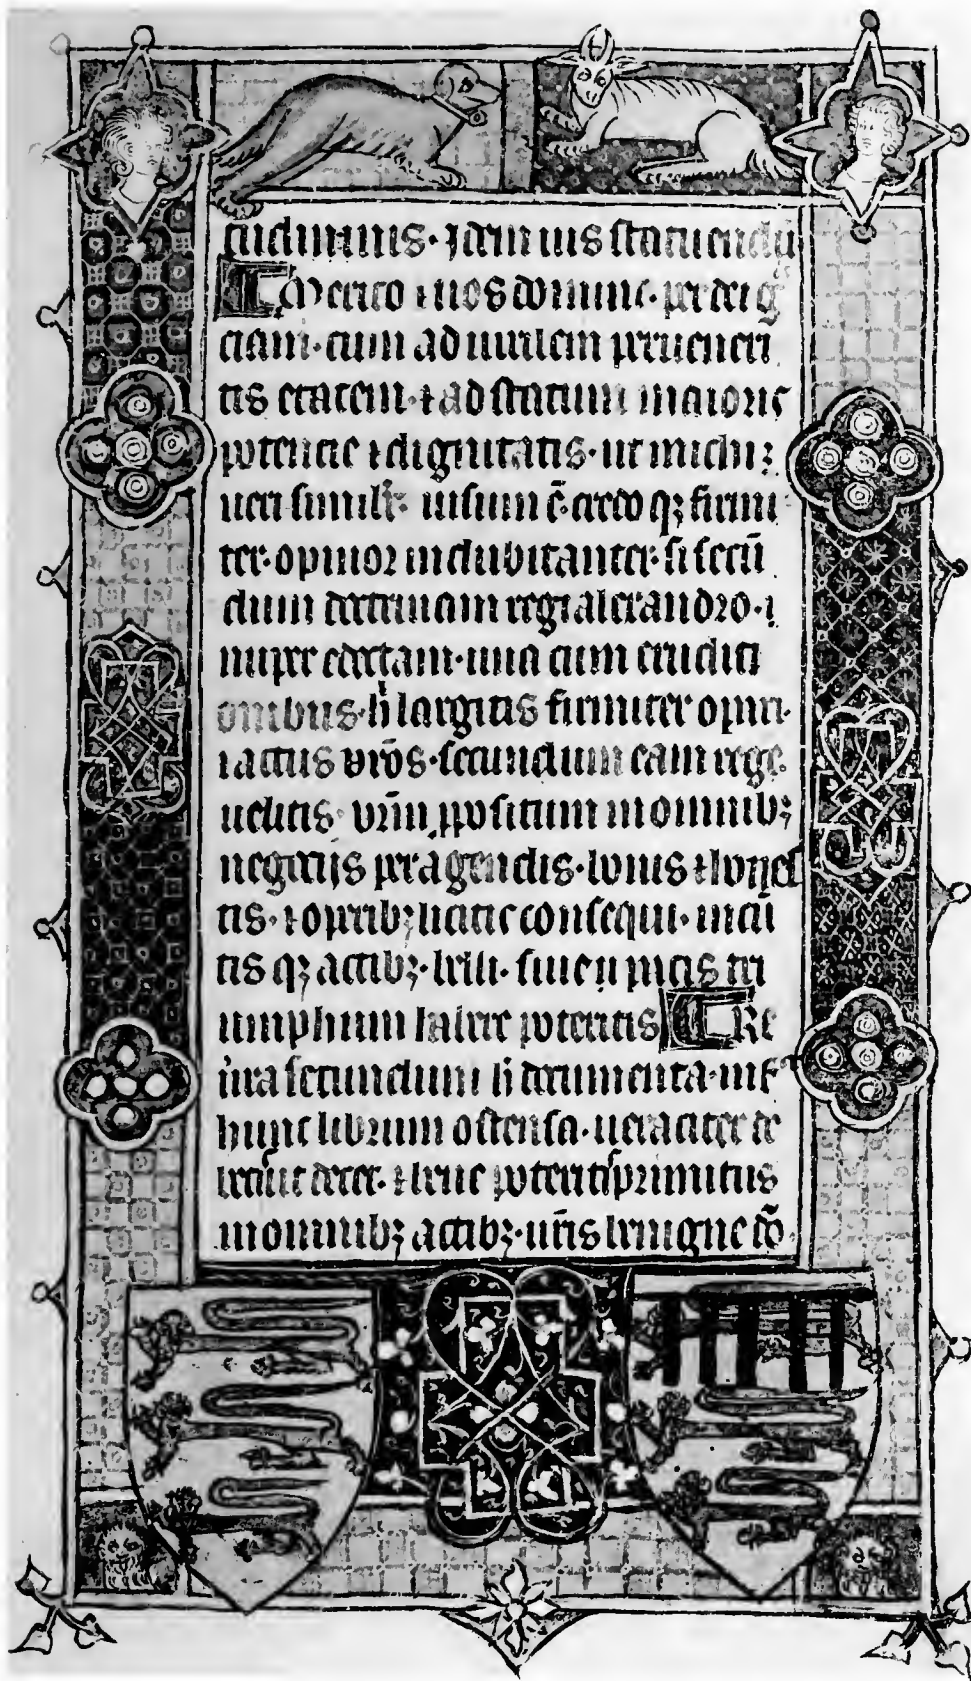 tudinius. idem ius statuendū
Merito & uos domine. per dei gͣ
ciam. cum ad uirilem perueneri
tis etatem. & ad statum maioris
potencie & dignitatis. ut michi
ueri simile uisum ē. credo qꝫ firmi
ter. opinor indubitanter. si secū
dum doctrinam regi alexandro. i
nuper editam. una cum eruditi
onibus. hͥ largitis firmiter
actus vr̄os. secundum eam rege
uelitis. vr̄m ꝓpositum in omnibꝫ
negocijs peragendis. bonis & hones
tis. & operibꝫ licite consequi. incū
tis qꝫ actibꝫ. belli. siue pacis tri
umphum habere poteritis Re
uͣra secundum hͥ documenta. inf͛ͣ
hunc librum ostensa. ueraciter de
decet. & bene potestis primitus
in omnibꝫ actibꝫ. ur̄is benigne cō